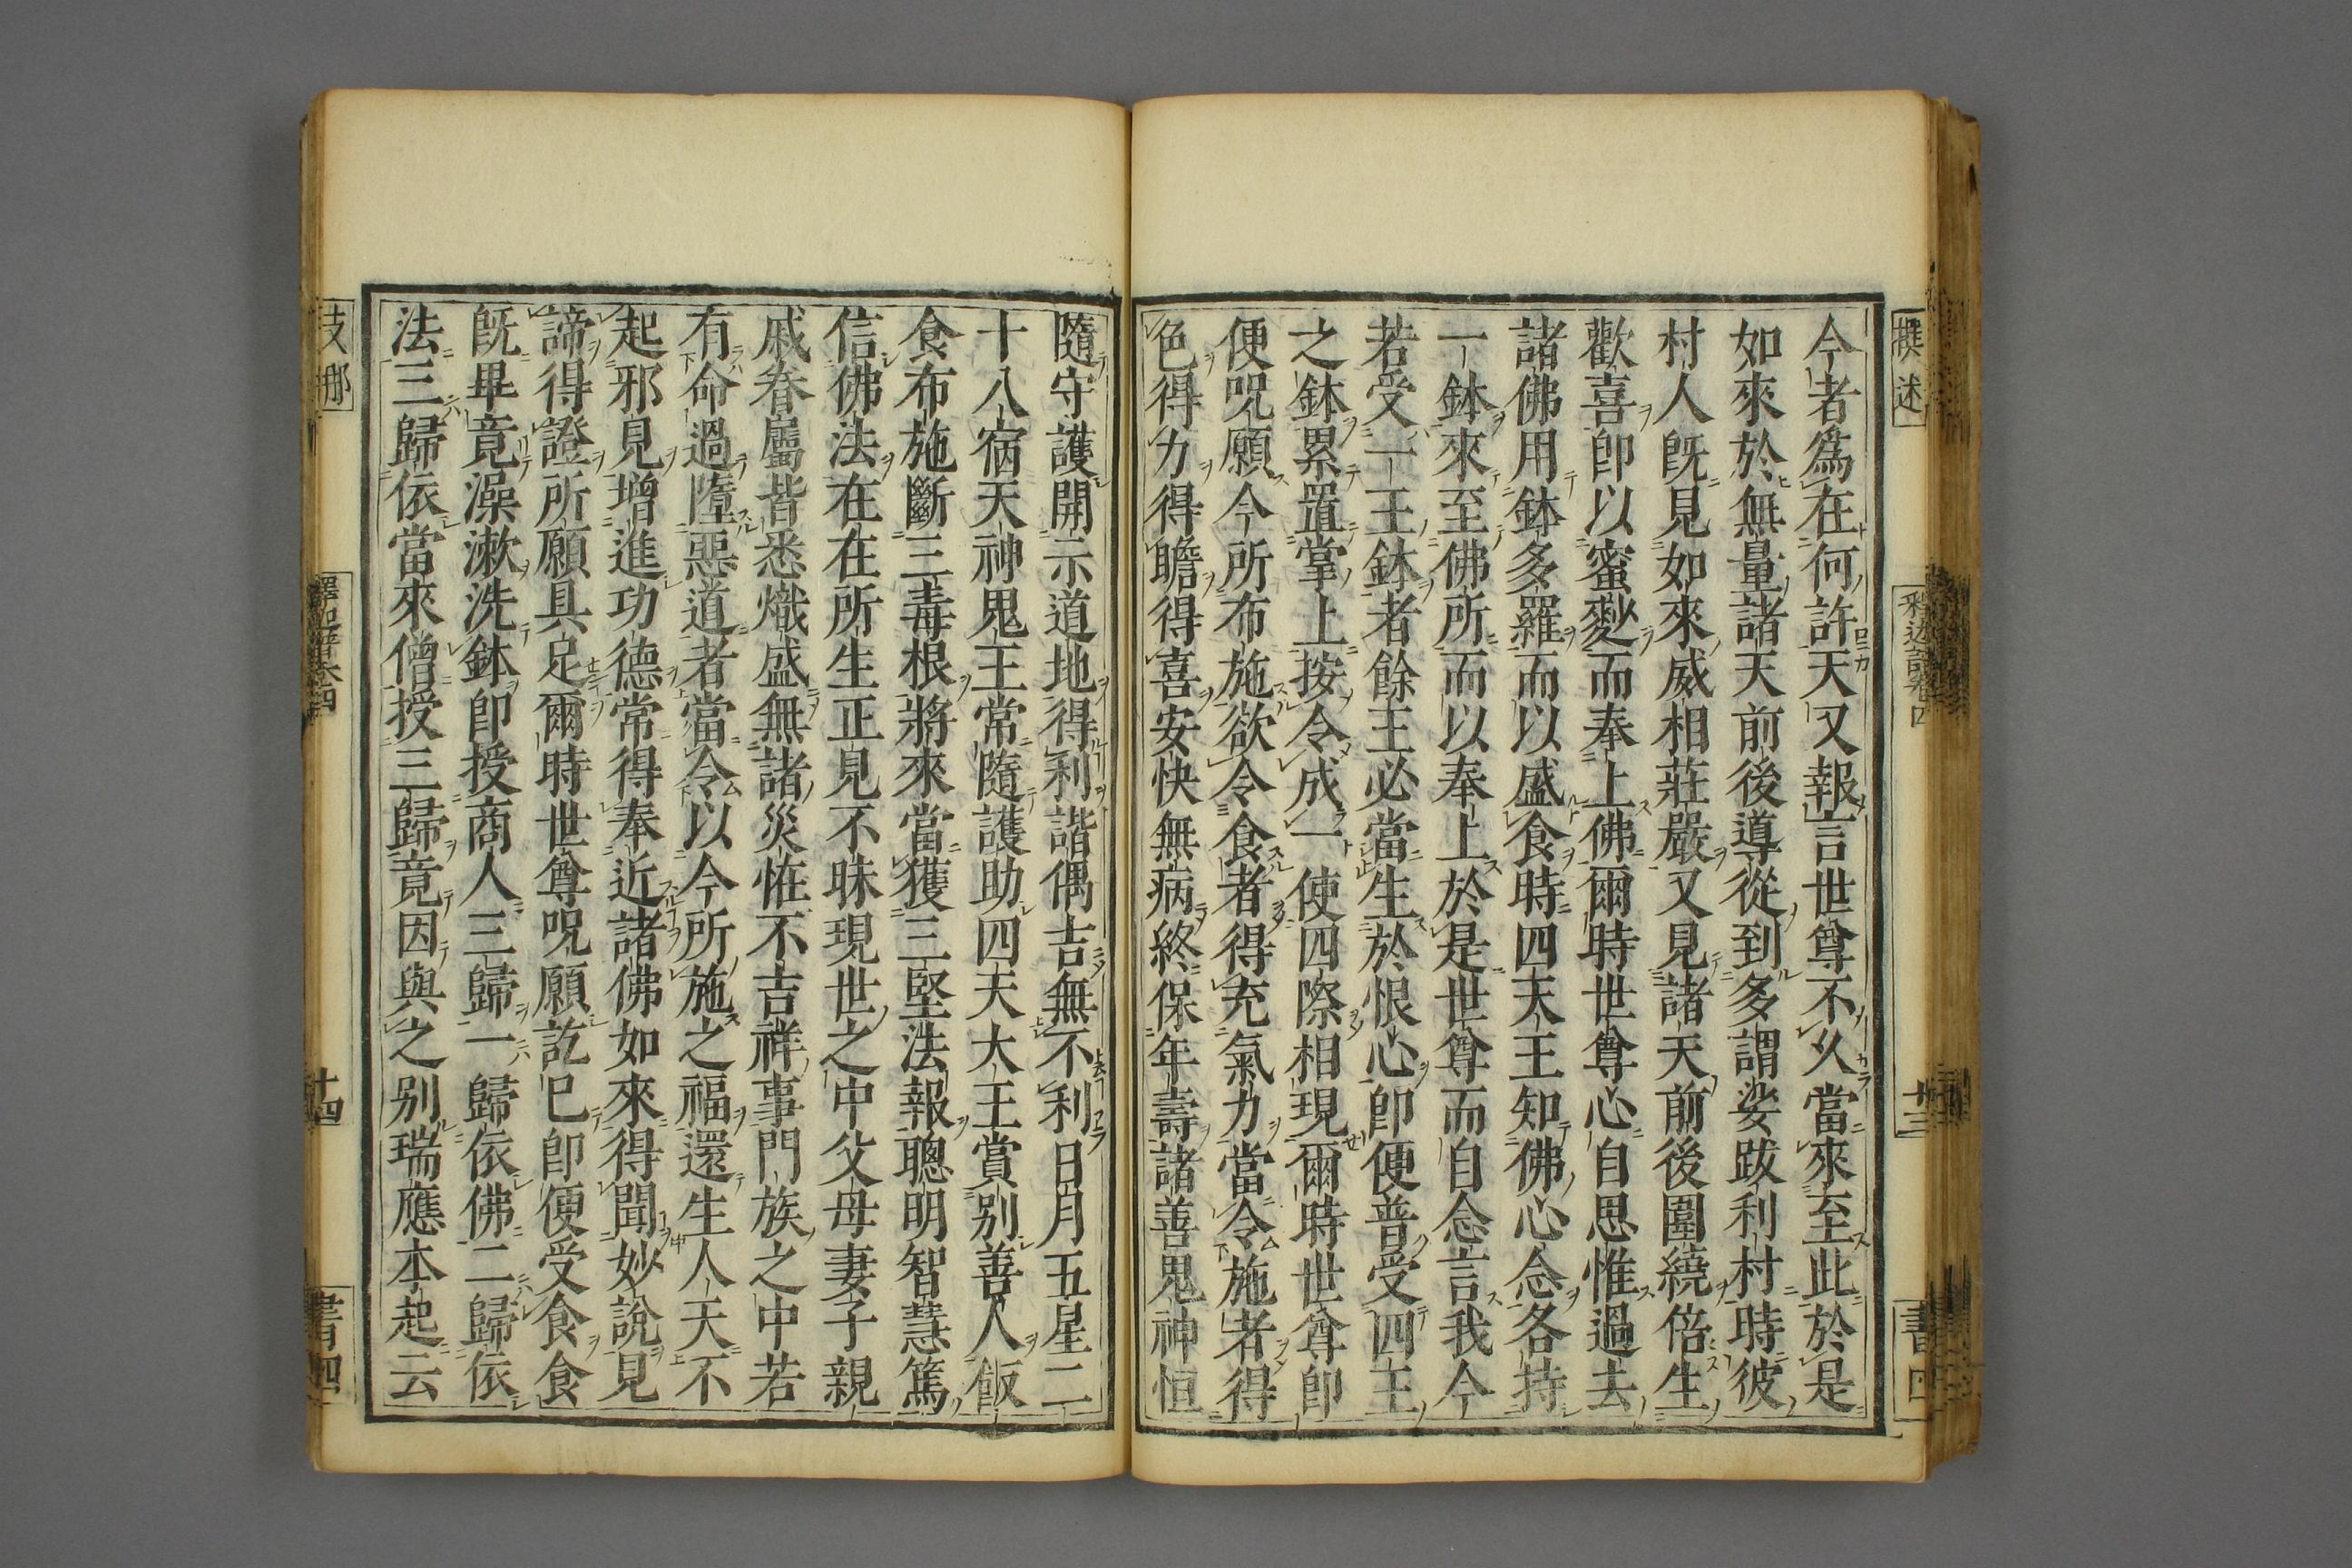 撰述
釋迦譜卷四
十三
書四
今者爲在何許天又報言世尊不久當來至此於是
如來於無量諸天前後導從到多謂娑跋利村時彼
村人旣見如來威相莊嚴又見諸天前後圍繞倍生
歡喜卽以蜜麨而奉上佛爾時世尊心自思惟過去
諸佛用鉢多羅而以盛食時四天王知佛心念各持
一鉢來至佛所而以奉上於是世尊而自念言我今
若受一王鉢者餘王必當生於恨心卽便普受四王
之鉢累置掌上按令成一使四際相現爾時世尊卽
便呪願今所布施欲令食者得充氣力當令施者得
色得力得瞻得喜安快無病終保年壽諸善鬼神恒
隨守護開示道地得利諧偶吉無不利日月五星二
十八宿天神鬼王常隨護助四天大王賞別善人飯
食布施斷三毒根將來當獲三堅法報聰明智慧篤
信佛法在在所生正見不昧現世之中父母妻子親
戚眷屬皆悉熾盛無諸災恠不吉祥事門族之中若
有命過墮惡道者當令以今所施之福還生人天不
起邪見增進功德常得奉近諸佛如來得聞妙說見
諦得證所願具足爾時世尊呪願訖已卽便受食食
旣畢竟澡漱洗鉢卽授商人三歸一歸依佛二歸依
法三歸依當來僧授三歸竟因與之別瑞應本起云
支那
釋迦譜卷四
十四
書四